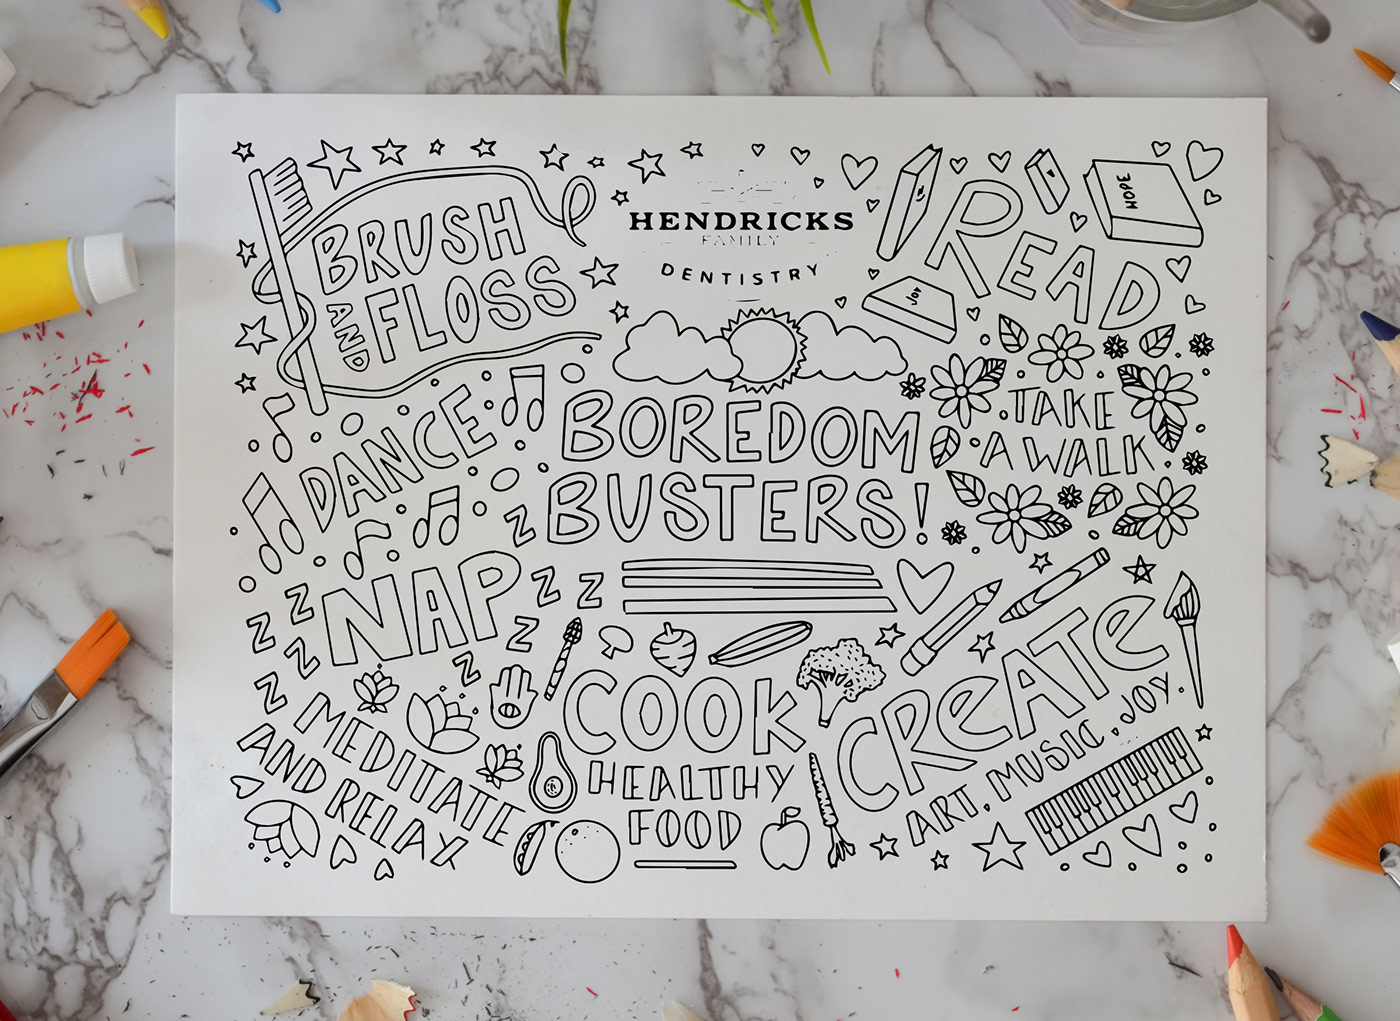 BRUSH
AND
FLOSS
HENDRICKS
FAMILY
DENTISTRY
READ
HOPE
JOY
DANCE
BOREDOM
BUSTERS!
TAKE
A WALK
Z
NAP
Z Z
Z Z
Z
Z
Z
Z
Z
MEDITATE
AND RELAX
COOK
HEALTHY
FOOD
CREATE
ART, MUSIC, JOY.